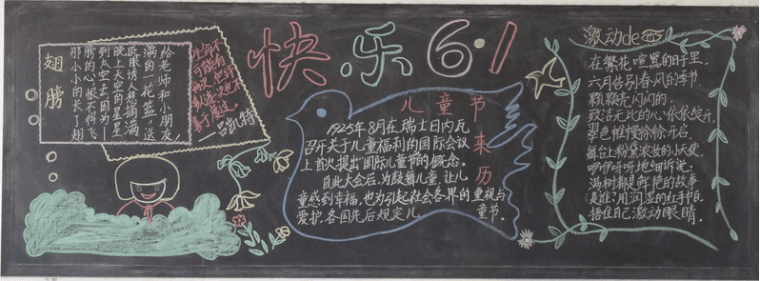 快乐6·1
翅膀
给老师和小朋友
满的一花篮,送
眨眼诱人想摘满
晚上天空的星星
到太空去,因为—
膀的心恨不得飞
那小小的长了翅
吕凯特
儿童节来历
1925年8月在瑞士日内瓦
召开关于儿童福利的国际会议
上首次提出“国际儿童节”的概念。
自此大会后,为鼓舞儿童,让儿
童感到幸福,也为引起社会各界的重视与
爱护,各国先后规定儿童节。
激动de
在繁花喧嚣的日子里,
六月告别春风的季节,
颗颗亮闪闪的,
翠色帷幔徐徐开启,
舞台上粉黛浓妆的小天使,
咿咿呀呀地细诉说:
满树都是鲜艳的故事
是谁用润湿的红手帕,
捂住自己激动眼睛。